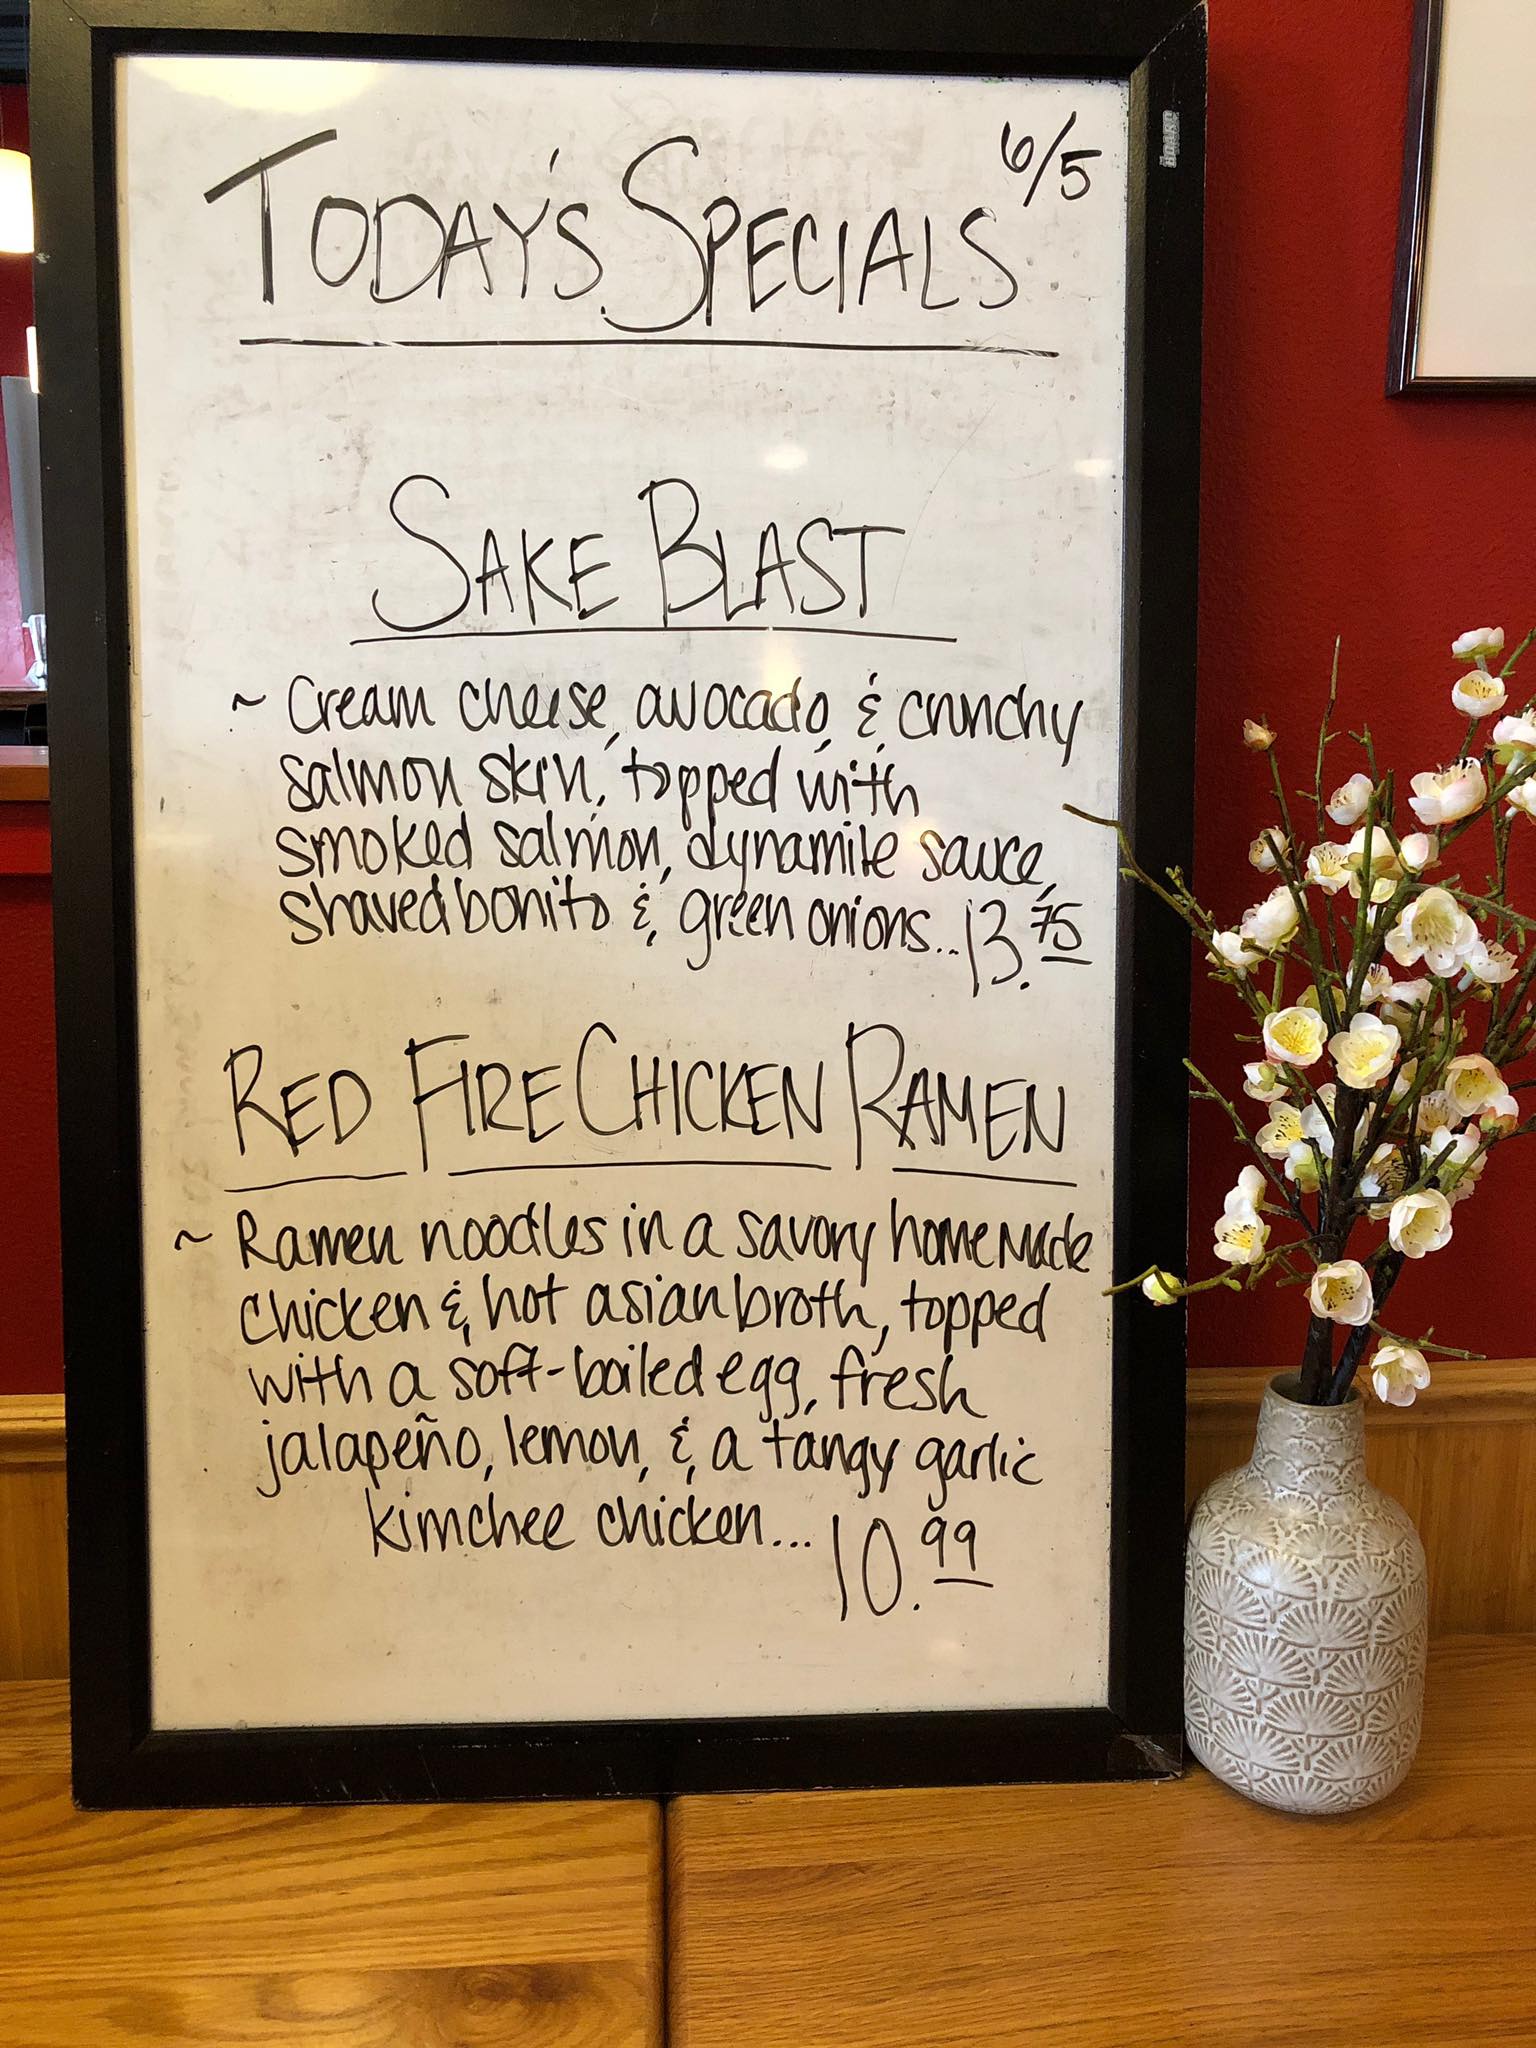 6/5
TODAY'S SPECIALS
SAKE BLAST
~ Cream cheese, avocado, & crunchy
salmon skin, topped with
smoked salmon, dynamite sauce,
shaved bonito & green onions...13.75
RED FIRE CHICKEN RAMEN
~ Ramen noodles in a savory homemade
chicken & hot asian broth, topped
with a soft-boiled egg, fresh
jalapeño, lemon, & a tangy garlic
kimchee chicken... 10.99